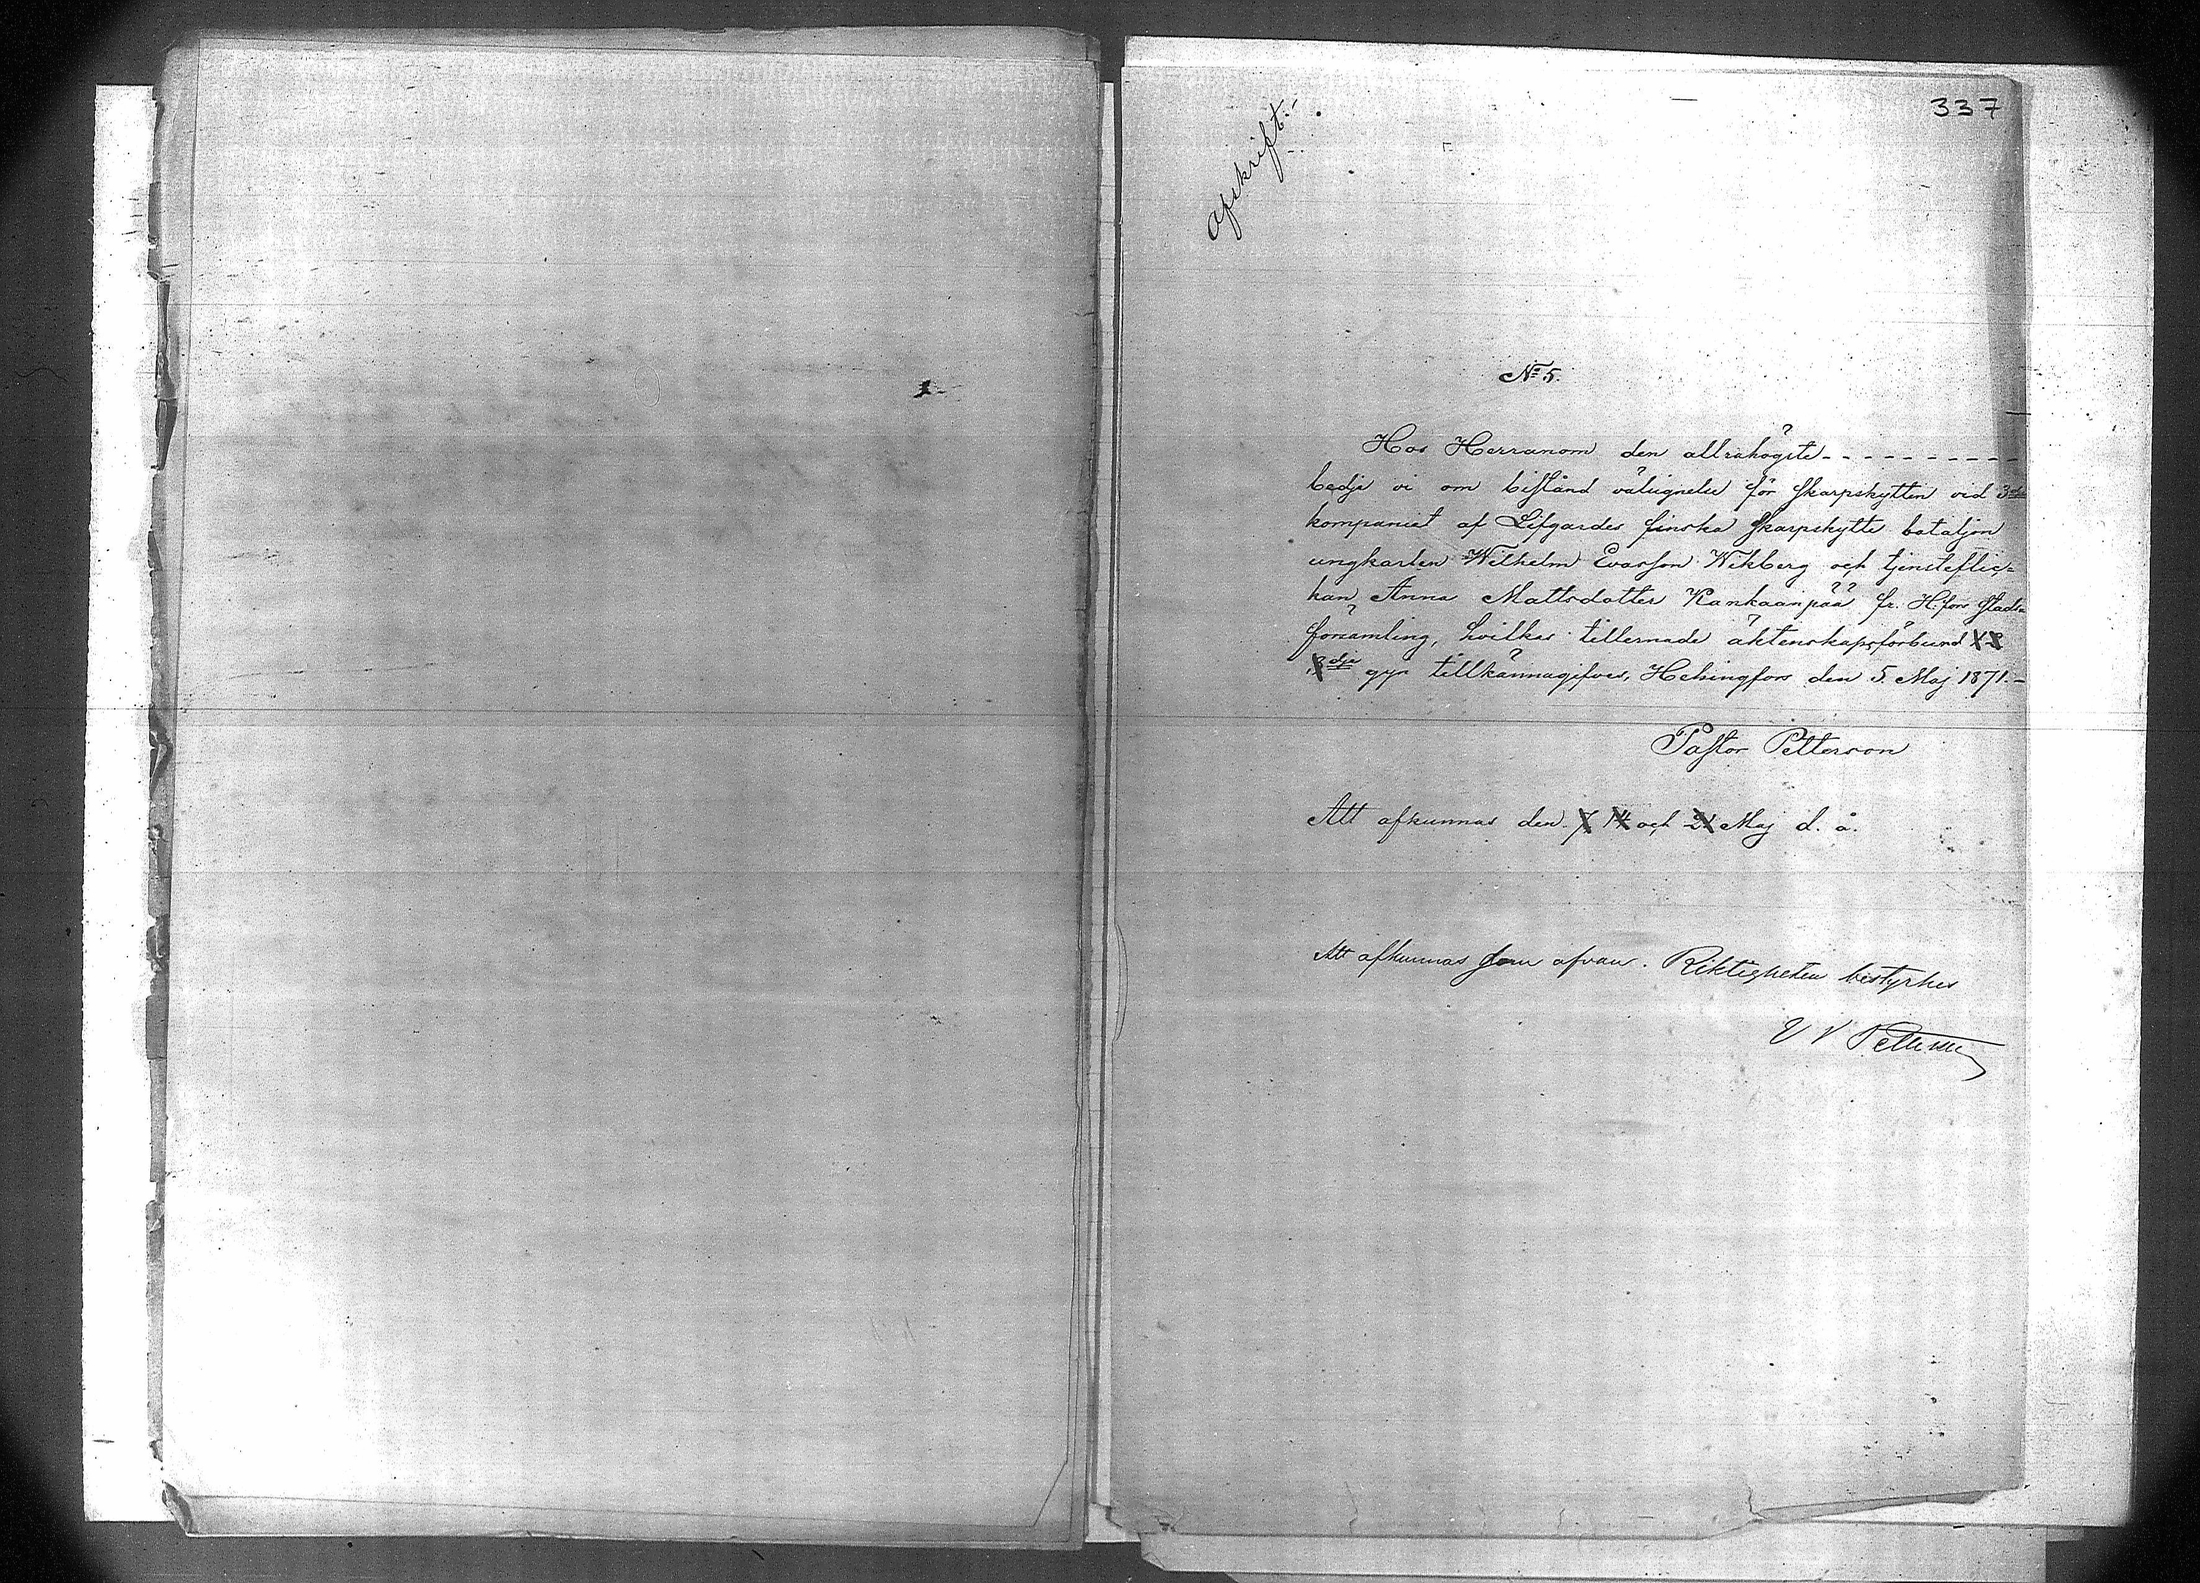 337
Afskrift:
№ 5.
Hos Herranom den allrahögste - - - - - - - - - -
bedja vi om bistånd välsignelse för Skarpskytten vid 3dje
kompaniet af Lifgardes finska Skarpskytte bataljon
ungkarlen Wilhelm Evasson Wikberg och tjenstefliç-
kan Anna Mattsdotter Kankaanpää fr. H:fors Stads
församling, hvilkas tillernade äktenskapsförbund 1 2
3dje ggn tillkännagifves, Helsingfors den 5. Maj 1871.-
Pastor Petterson
Att afkunnas den 7 14 och 21 Maj d. å.
Att afkunnas som ofvan. Riktigheten bestyrkes
V V Petterson